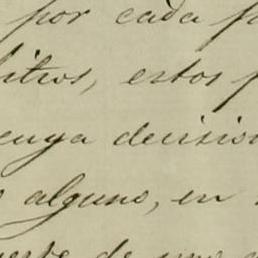 por cada p
bitros, estos p
cuya decisio
alguno, en
de uno